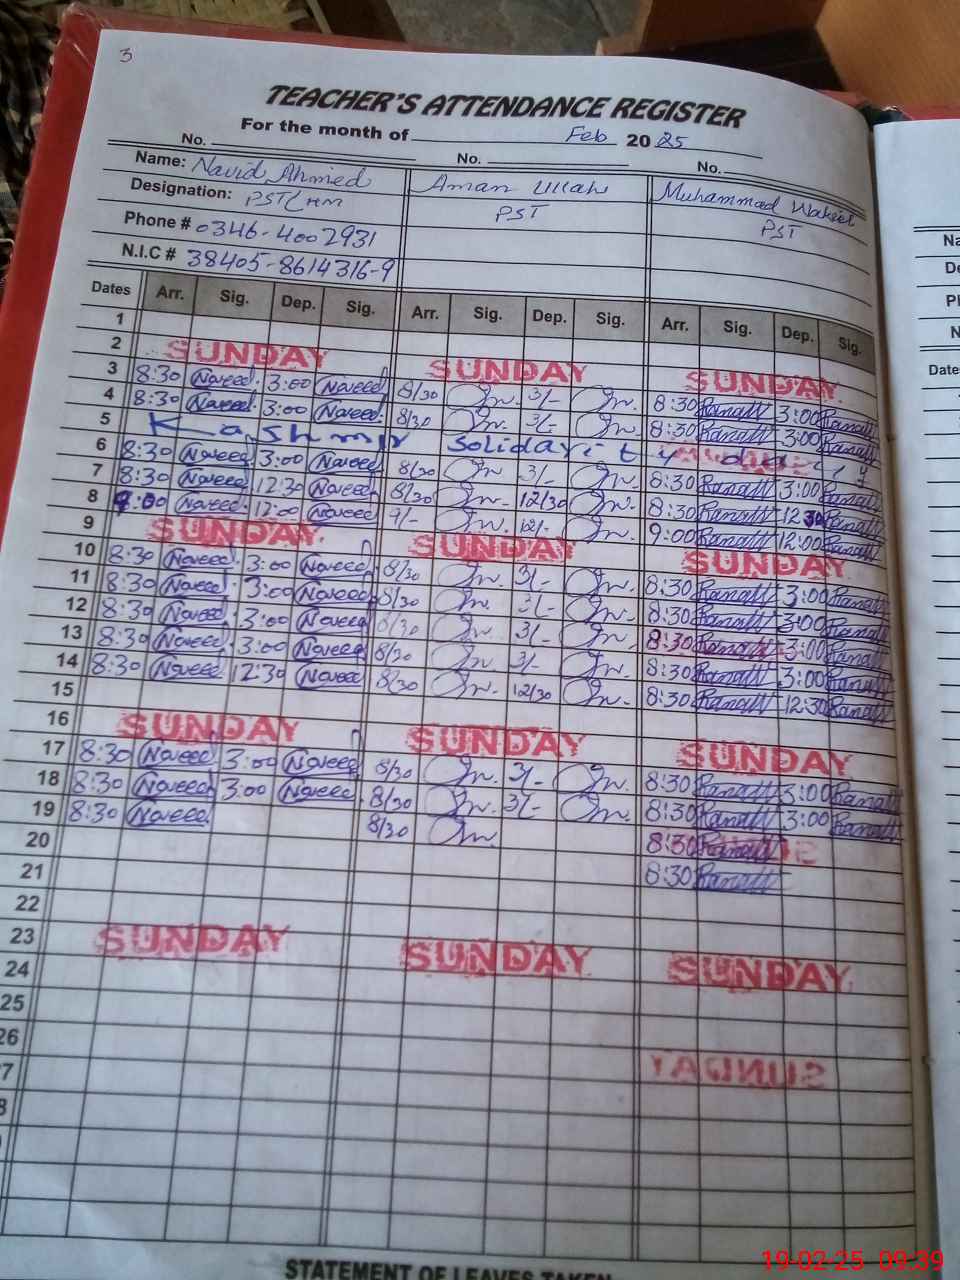 3
TEACHER'S ATTENDANCE REGISTER
For the month of Feb 2025
No. No. No.
Name: Navid Ahmed Aman Ullah Muhammad Wakeel
Designation: PST/HM PST PST
Phone # 0346-4002931
N.I.C # 38405-8614316-9
Dates Arr. Sig. Dep. Sig. Arr. Sig. Dep. Sig. Arr. Sig. Dep. Sig.
1
2 SUNDAY SUNDAY SUNDAY
3 8:30 Naveed 3:00 Naveed 8/30 3/- 8:30 3:00
4 8:30 Naveed 3:00 Naveed 8/30 3/- 8:30 3:00
5 Kashmir Solidarity day
6 8:30 Naveed 3:00 Naveed 8/30 3/- 8:30 3:00
7 8:30 Naveed 12:30 Naveed 8/30 12/30 8:30 12:30
8 9:00 Naveed 12:00 Naveed 9/- 12/- 9:00 12:00
9 SUNDAY SUNDAY SUNDAY
10 8:30 Naveed 3:00 Naveed 8/30 3/- 8:30 3:00
11 8:30 Naveed 3:00 Naveed 8/30 3/- 8:30 3:00
12 8:30 Naveed 3:00 Naveed 8/30 3/- 8:30 3:00
13 8:30 Naveed 3:00 Naveed 8/30 3/- 8:30 3:00
14 8:30 Naveed 12:30 Naveed 8/30 12/30 8:30 12:30
15
16 SUNDAY SUNDAY SUNDAY
17 8:30 Naveed 3:00 Naveed 8/30 3/- 8:30 3:00
18 8:30 Naveed 3:00 Naveed 8/30 3/- 8:30 3:00
19 8:30 Naveed 8/30 8:30
20 8:30
21
22
23 SUNDAY SUNDAY SUNDAY
24
25
26
7 SUNDAY
8
STATEMENT OF LEAVES TAKEN
Na
De
Ph
N
Dates
19-02-25 09:39